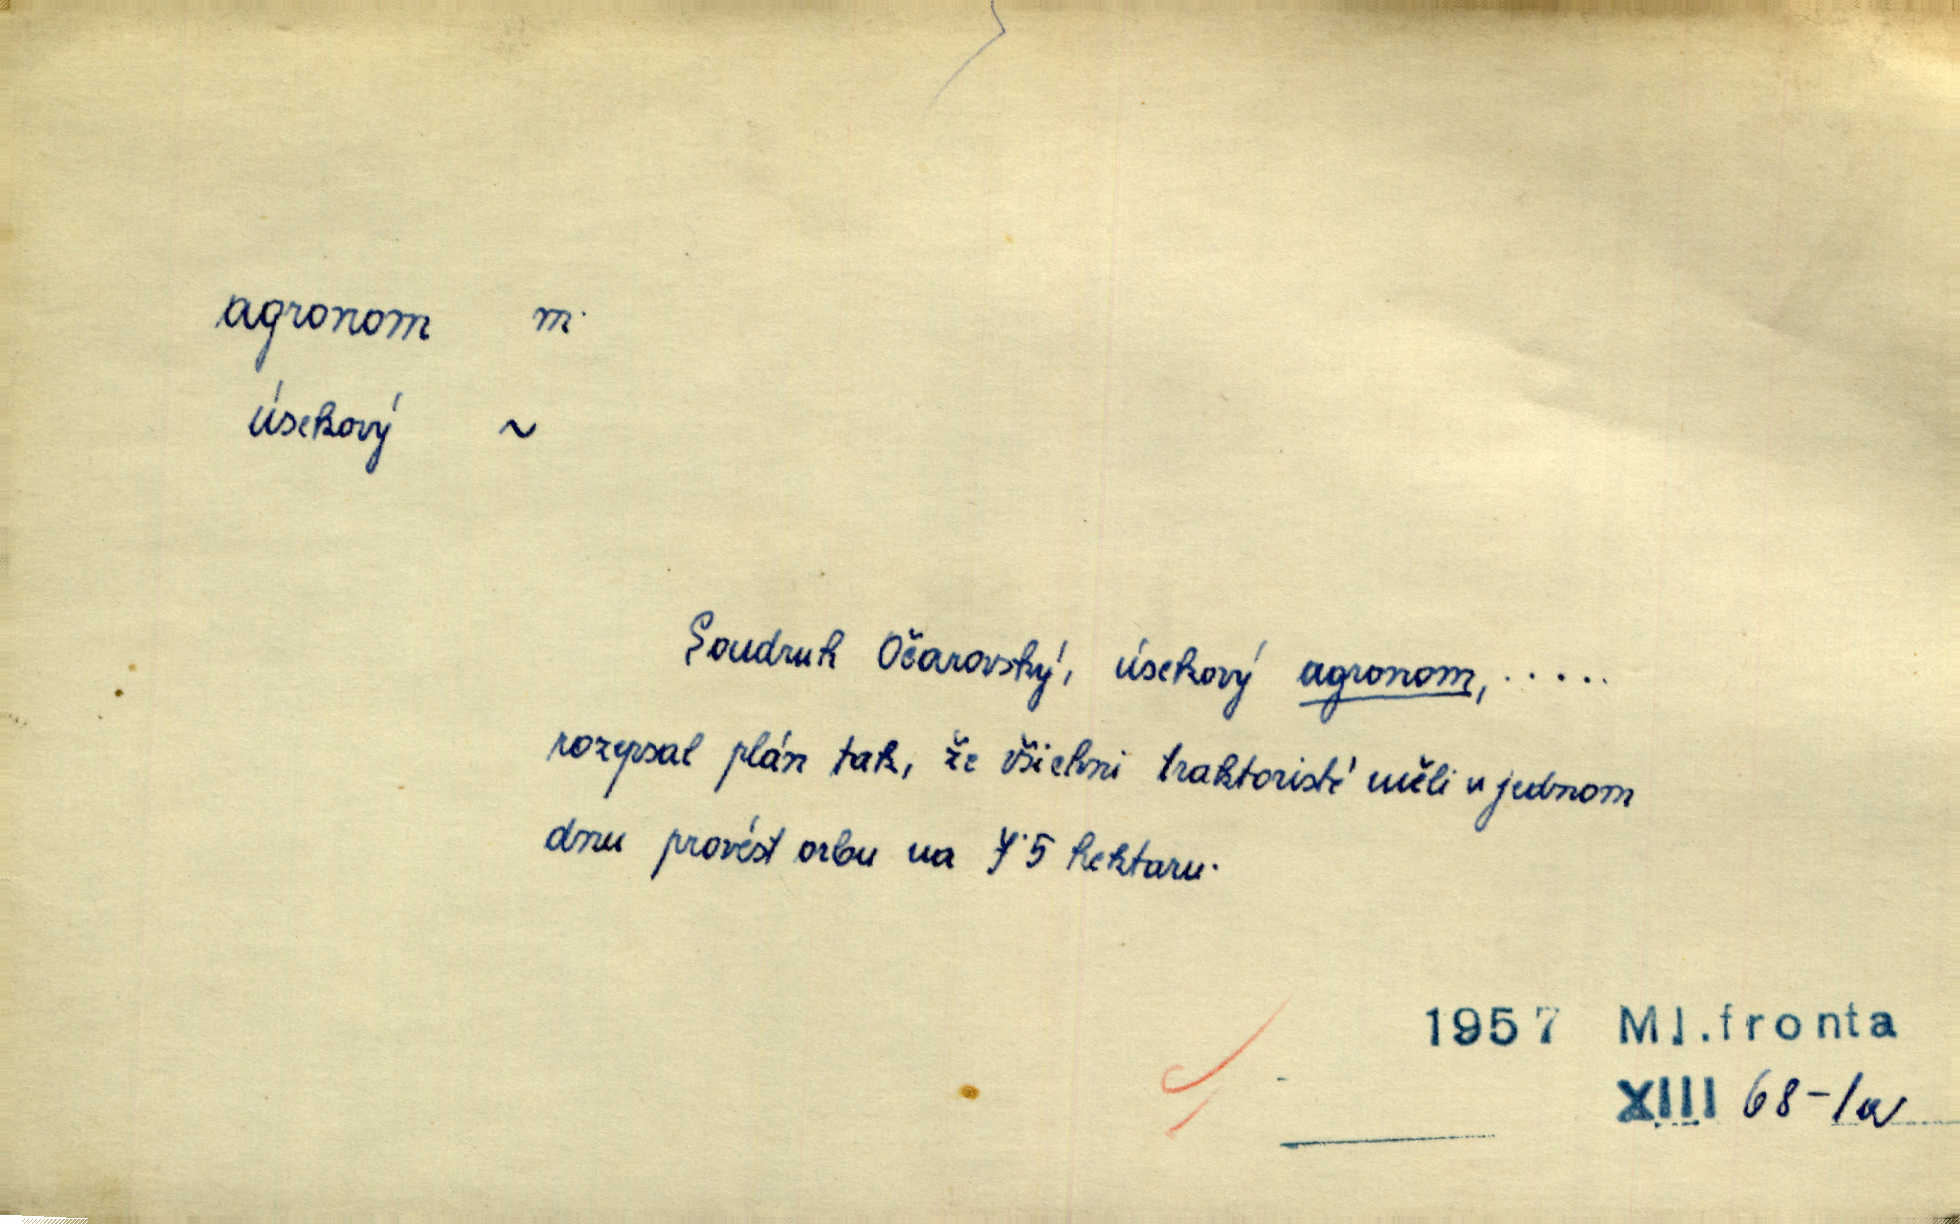 agronom m.
úsekový ~
Soudruh Očarovský, úsekový agronom, .....
rozepsal plán tak, že všichni traktoristé měli v jednom
dnu provést orbu na 7·5 hektaru.
1957 Ml.fronta
XIII 68-1a